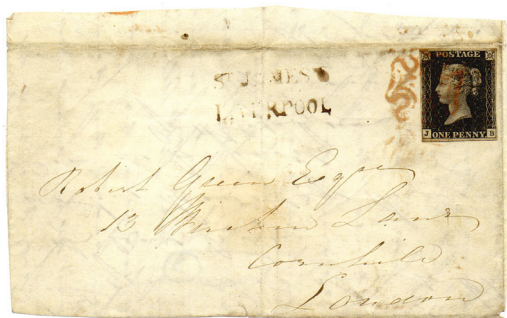 St JAMES S
LIVERPOOL
POSTAGE
J B
ONE PENNY
Robert Green Esqre
13 Lane
Cornhill
London